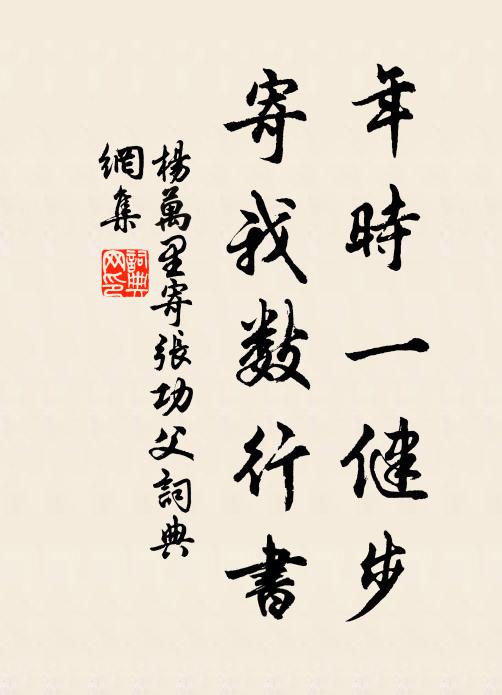 年時一健步
寄我數行書
楊萬里寄張功父詞典
網集
詞典
網印